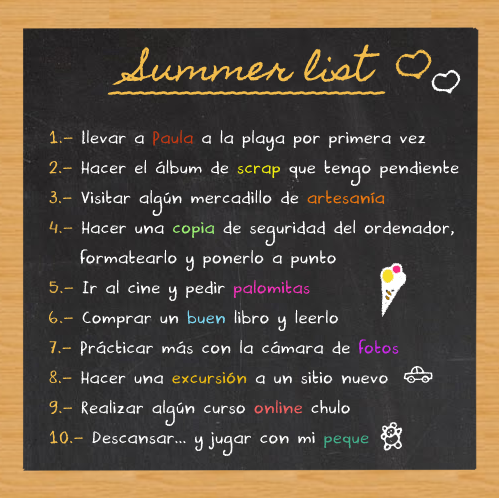 Summer list
1.- llevar a Paula a la playa por primera vez
2.- Hacer el álbum de scrap que tengo pendiente
3.- Visitar algún mercadillo de artesanía
4.- Hacer una copia de seguridad del ordenador,
formatearlo y ponerlo a punto
5.- Ir al cine y pedir palomitas
6.- Comprar un buen libro y leerlo
7.- Prácticar más con la cámara de fotos
8.- Hacer una excursión a un sitio nuevo
9.- Realizar algún curso online chulo
10.- Descansar... y jugar con mi peque